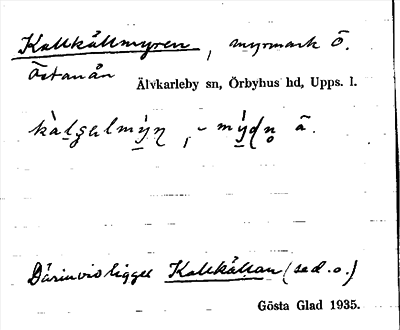 Kallkällmyren, myrmark Ö.
Östanån
Älvkarleby sn, Örbyhus hd, Upps. l.
ā.
Därinvid ligger Kallkällan (se d. o.)
Gösta Glad 1935.